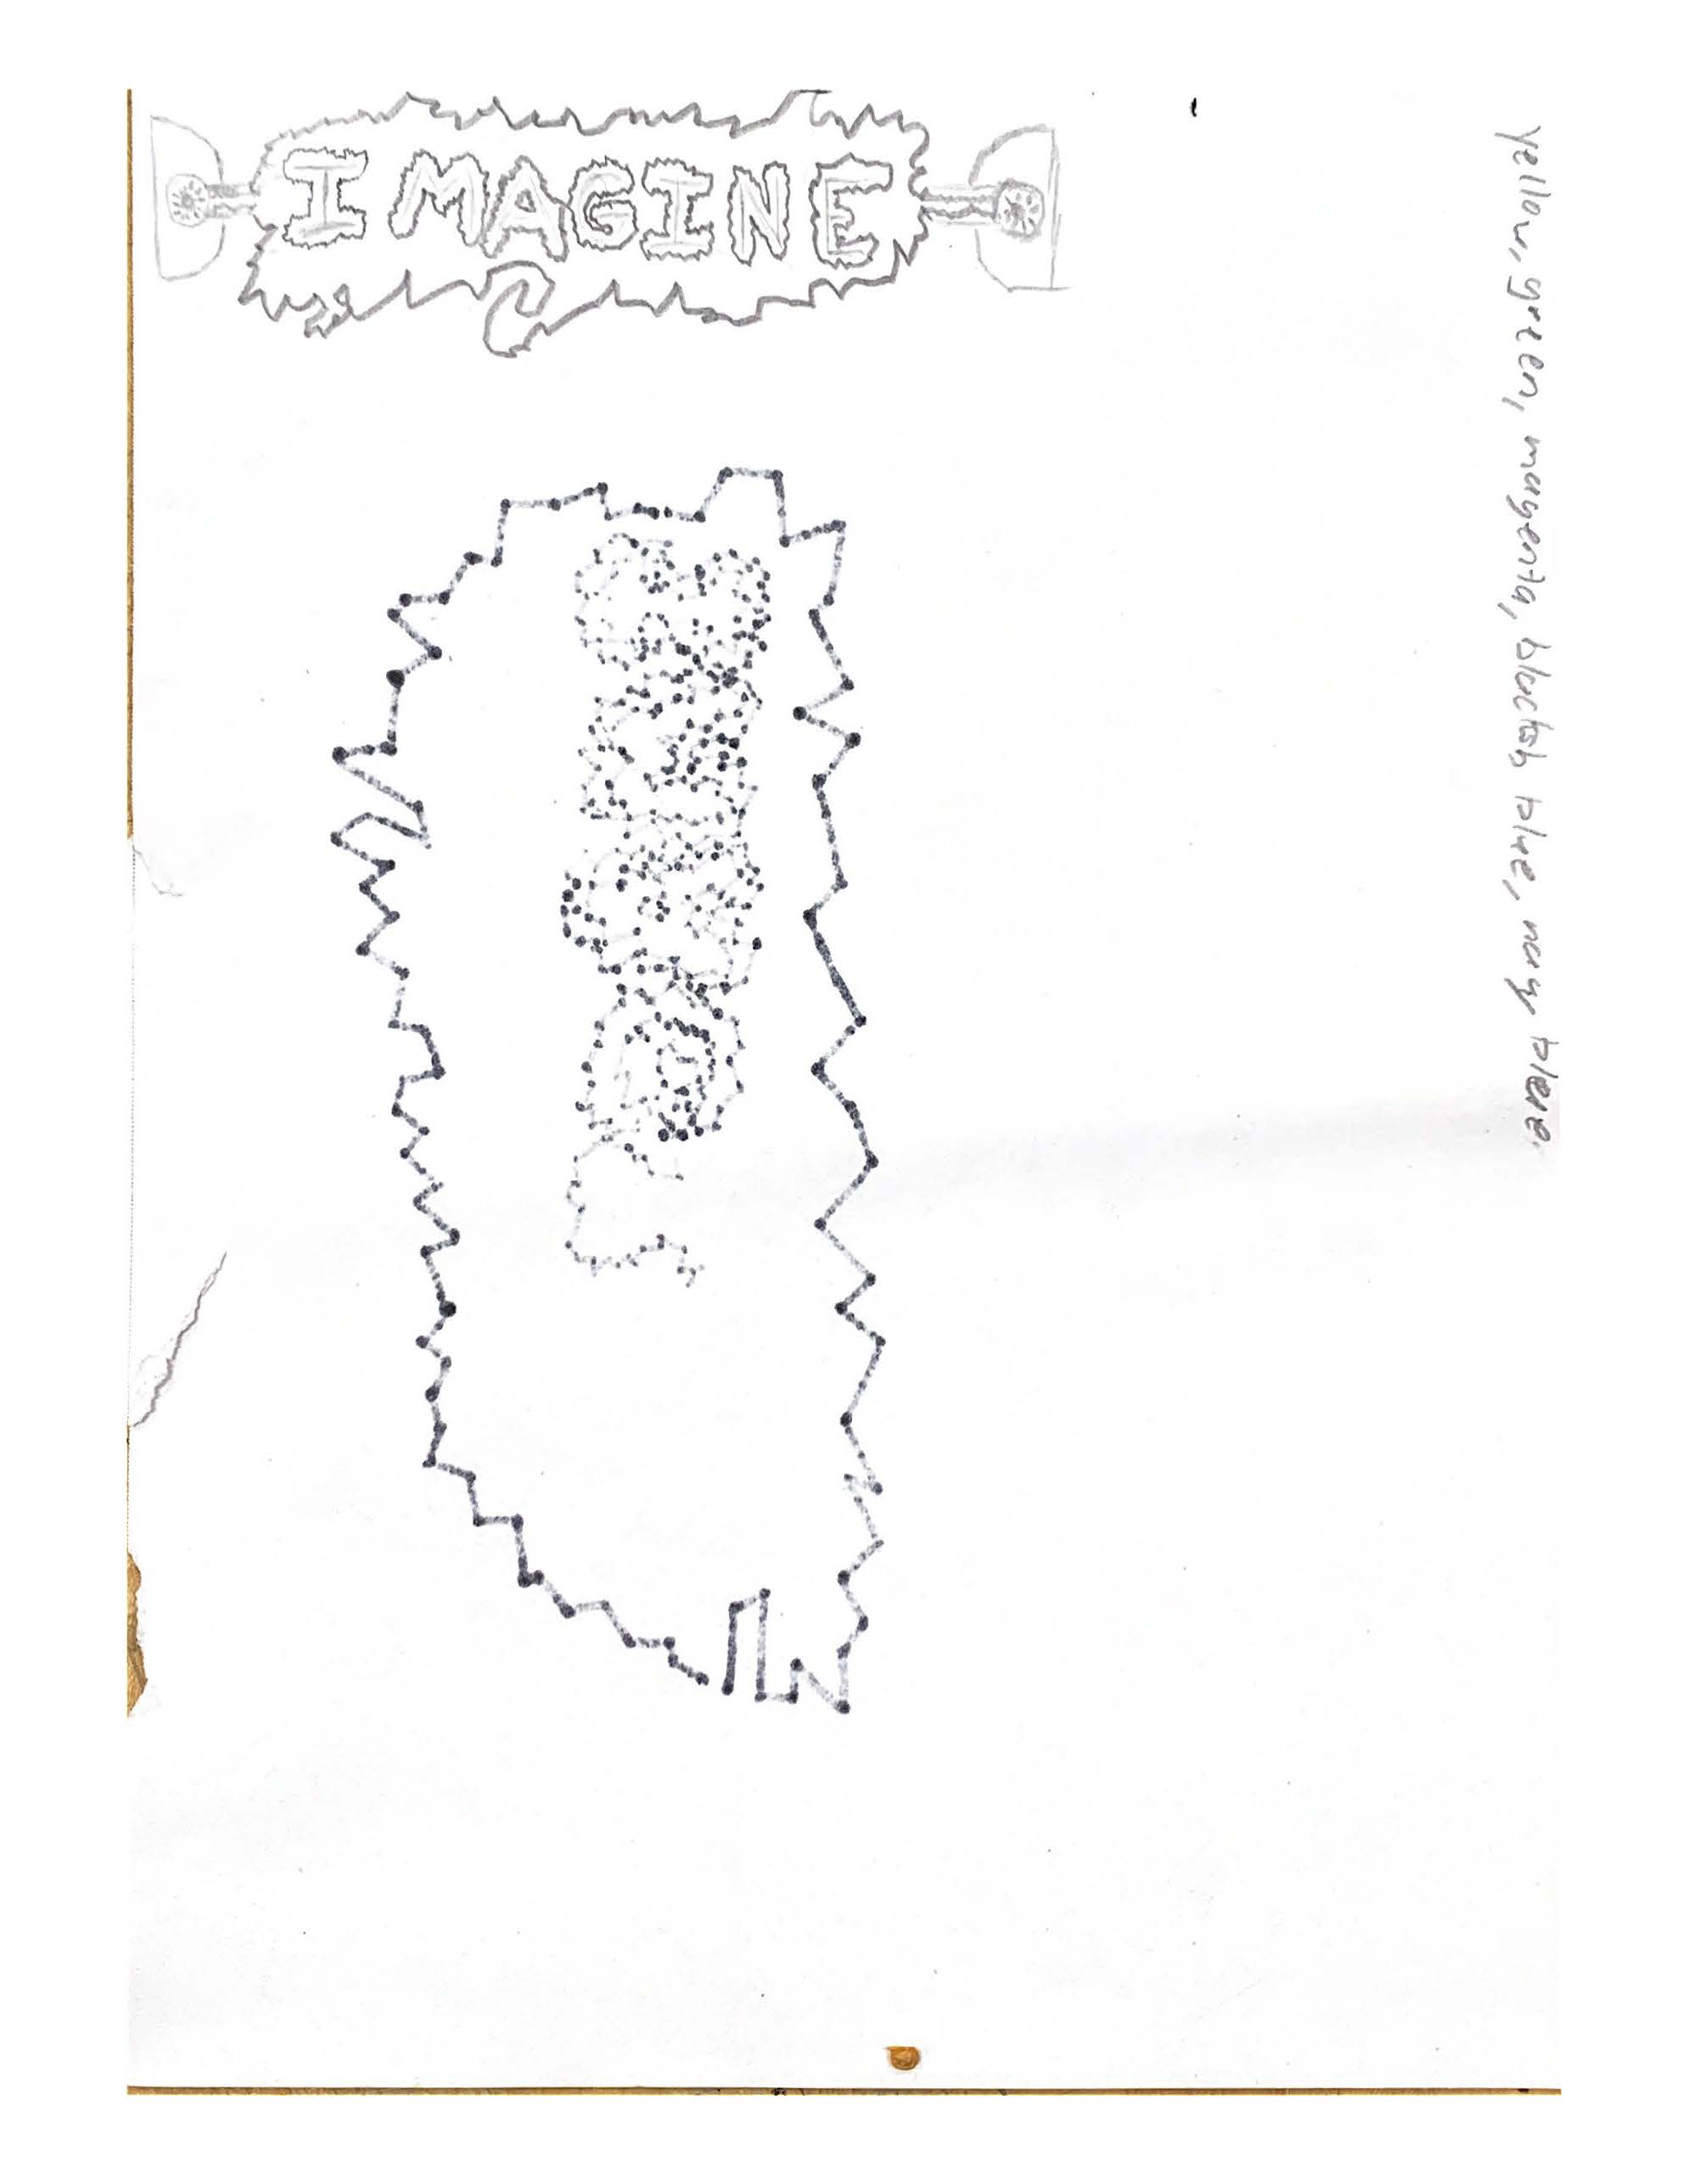 IMAGINE
yellow, green, magenta, blackish blue, navy bleue.